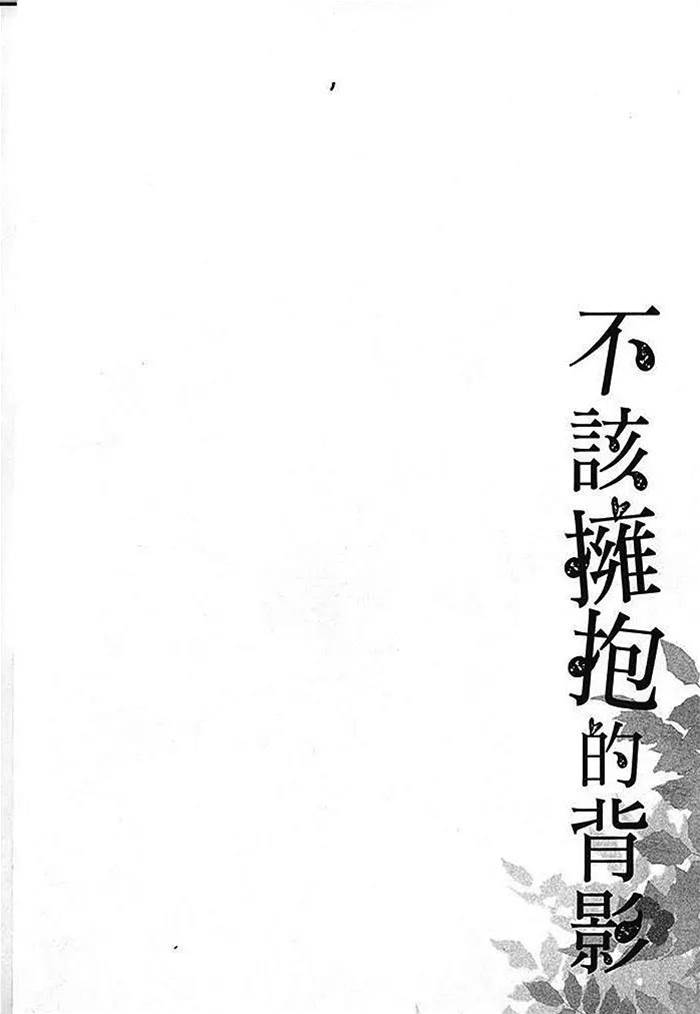 不該擁抱的背影